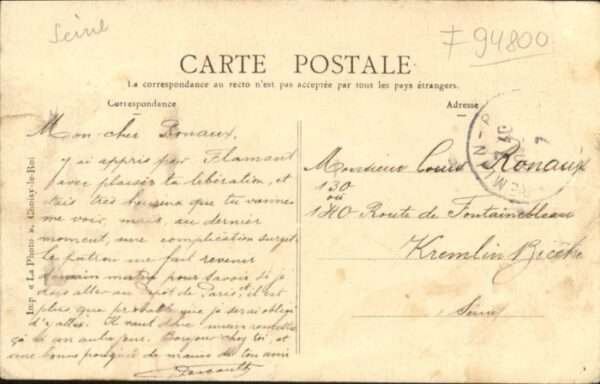 Seine
F 94800
CARTE POSTALE
La correspondance au recto n'est pas acceptée par tous les pays étrangers.
Correspondance
Adresse
Mon cher Ronaux,
J'ai appris par Flamant
avec plaisir ta libération, et
étais très heureux que tu vannes
me voir, mais, au dernier
moment, une complication surgit,
le patron me fait revenir
demain matin pour savoir si je
dois aller au dépôt de Paris et il est
plus que probable que je serai obligé
d'y aller. Il vaut donc mieux remettre
ça à un autre jour. Bonjour chez toi, et
une bonne poignée de mains de ton ami
Monsieur Louis Ronaux
130
ou
140 Route de Fontainebleau
Kremlin Bicêtre
Seine
Imp. « La Photo », Choisy-le-Roi